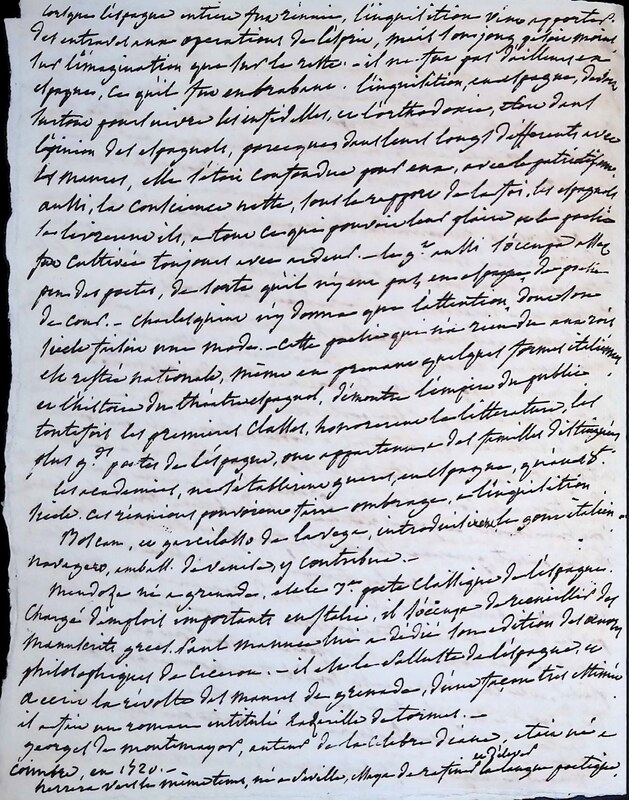 lorsque l'espagne entiere fut réunie, l'inquisition vint apporter
des entraves aux operations de l'esprit, mais son joug pesoit moins
sur l'imagination que sur le reste. - il ne fut pas d'ailleurs en
espagne, ce qu'il fut en brabant. l'inquisition, en espagne,
surtout poursuivre les infidelles, et l'orthodoxie, etoit dans
l'opinion des espagnols, parceque dans leurs longs differents avec
les maures, elle s'étoit confondue pour eux, avec le patriotisme
aussi, la conscience nette, sous le rapport de la foi, les espagnols
se livrerent ils, a tout ce qui pouvoit leur plaire et la poesie
fut cultivée toujours avec ardeur. - le g.t aussi s'occupa assez
peu des poetes, de sorte qu'il n'y eut pas, en espagne, de poesie
de cour. - charlesquint n'y donna que l'attention dont son
siecle faisoit une mode. - cette poesie qui n'a rien du aux rois
est restée nationale, même en prenant quelques formes italiennes
et l'histoire du théatre espagnol, démontre l'empire du public
toutefois les premieres classes, honorerent la litterature, les
plus g.ds poetes de l'espagne, ont appartenu a des familles distinguées
les academies, ne s'etablirent guere, en espagne, qu'au 18.e
siecle. ces réunions pouvoient faire ombrage, a l'inquisition
Boscan, et garcilasso de la vega, introduisirent le gout italien
navagero, ambass. de venise y contribua. -
Mendoza né a grenade, est le 3.me poete classique de l'espagne.
Chargé d'emplois importants en italie, il s'occupa de recueillir des
manuscrits grecs. Paul manuce lui a dedié son edition des œuvres
philosophiques de ciceron. - il est le Salluste de l'espagne, et
a ecrit la révolte des maures de grenade, d'une façon très estimée
il a fait un roman intitulé Lazarille de tormes. -
georges de montemayor, auteur de la celebre diane, etoit né a
coimbre, en 1520. -
herrera vers le même tems, né a Seville, essaya de refondre et d'elever la langue poetique,